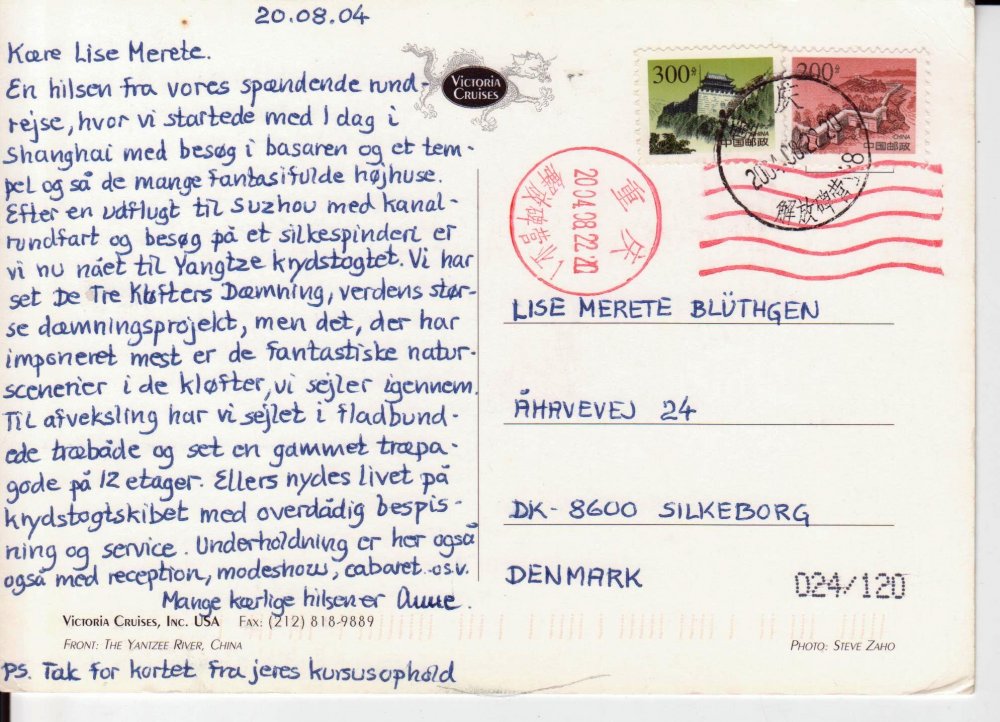 20.08.04
Kære Lise Merete.
En hilsen fra vores spændende rund-
rejse, hvor vi startede med 1 dag i
Shanghai med besøg i basaren og et tem-
pel og så de mange fantasifulde højhuse.
Efter en udflugt til Suzhou med kanal-
rundfart og besøg på et silkespinderi er
vi nu nået til Yangtze krydstogtet. Vi har
set De Tre Kløfters Dæmning, verdens stør-
se dæmningsprojekt, men det, der har
imponeret mest er de fantastiske natur-
scenerier i de kløfter, vi sejler igennem.
Til afveksling har vi sejlet i fladbund-
ede træbåde og set en gammet træpa-
gode på 12 etager. Ellers nydes livet på
krydstogtskibet med overdådig bespis-
ning og service. Underholdning er her også
også med reception, modeshow, cabaret osv.
Mange kærlige hilsener Anne.
VICTORIA CRUISES, INC. USA FAX: (212) 818-9889
FRONT: THE YANTZEE RIVER, CHINA
PS. Tak for kortet fra jeres kursusophold
VICTORIA
CRUISES
300分
CHINA
中国邮政
200分
CHINA
中国邮政
重庆
2004.08.22.20
解放碑营
庆
解放碑营
LISE MERETE BLÜTHGEN
ÅHAVEVEJ 24
DK- 8600 SILKEBORG
DENMARK
024/120
PHOTO: STEVE ZAHO